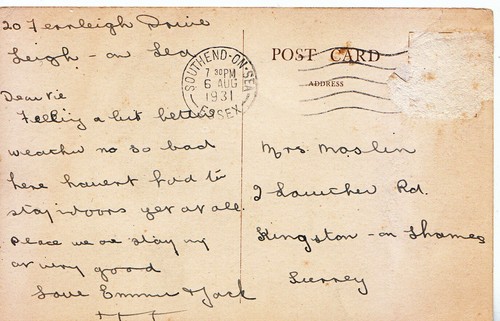 20 Fernleigh Drive
Leigh - on Sea
Dear Vie
Feeling a bit better
weather no so bad
here havent had to
stay indoors yet at all.
place we are staying
at very good
Love Emmie & Jack
SOUTHEND-ON-SEA
7 30PM
6 AUG
1931
ESSEX
POST CARD
ADDRESS
Mrs. Maslin
2 Rd.
Kingston - on Thames
Surrey